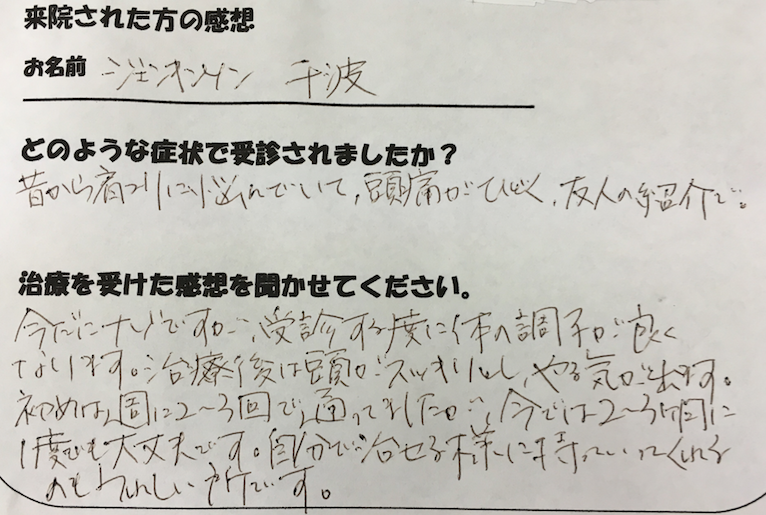 来院された方の感想
お名前 ジェンキンソン 千波
どのような症状で受診されましたか?
昔から肩コリに悩んでいて、頭痛がひどく、友人の紹介で。
治療を受けた感想を聞かせてください。
今だにナゾですが、受診する度に体の調子が良く
なります。治療後は頭がスッキリし、やる気が出ます。
初めは週に2〜3回で通ってましたが、今では2〜3ヶ月に
1度でも大丈夫です。自分で治せる様に持っていってくれる
のもうれしい所です。